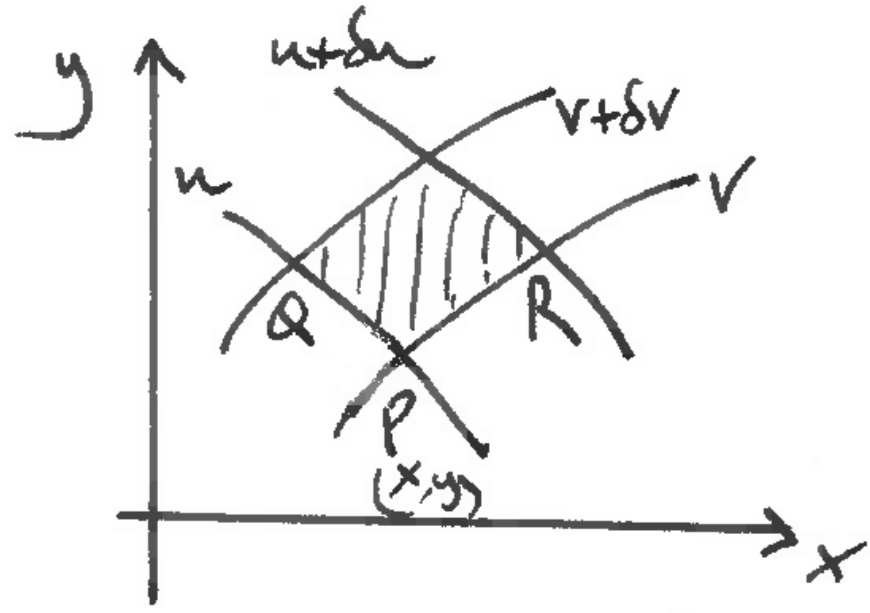 y
u+δu
v+δv
u
v
Q
R
P
(x,y)
x